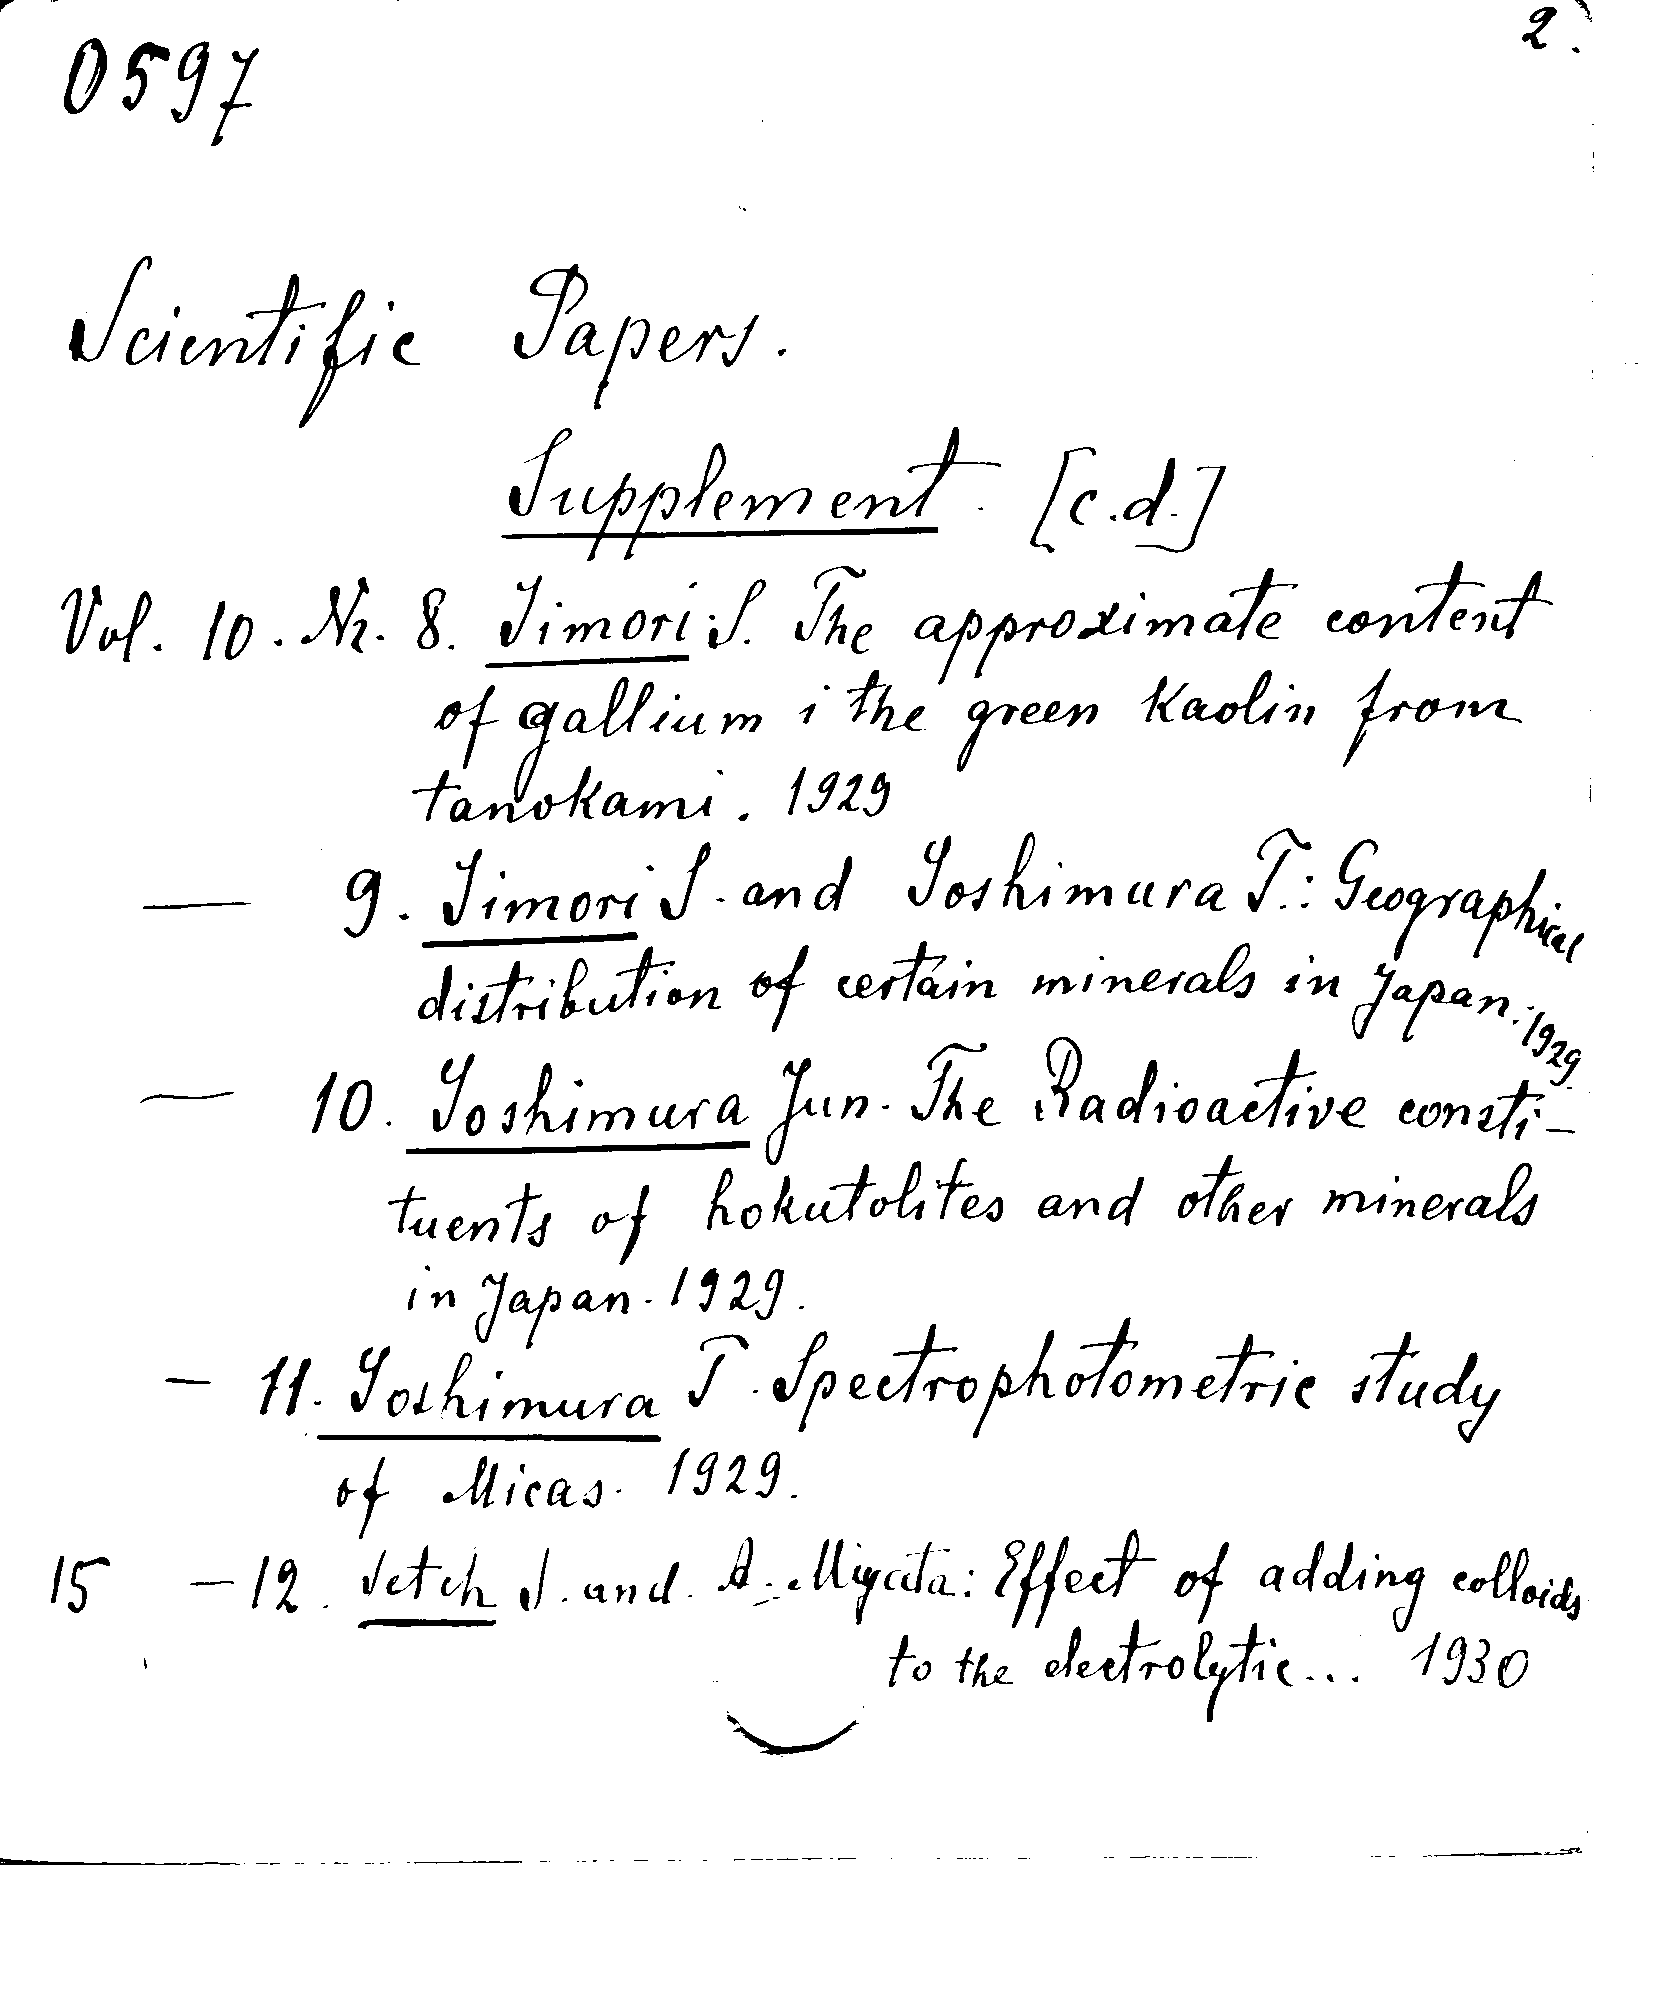 2.
0597
Scientific Papers.
Supplement. [c.d.]
Vol. 10. Nr. 8. Iimori S. The approximate content
of gallium i the green kaolin from
tanokami. 1929
— 9. Iimori S. and Yoshimura T.: Geographical
distribution of certain minerals in Japan. 1929
— 10. Yoshimura Jun. The Radioactive consti-
tuents of hokutolites and other minerals
in Japan. 1929.
— 11. Yoshimura T. Spectrophotometric study
of Micas. 1929.
15 — 12. Setch S. and A. Miyata: Effect of adding colloids
to the electrolytic... 1930